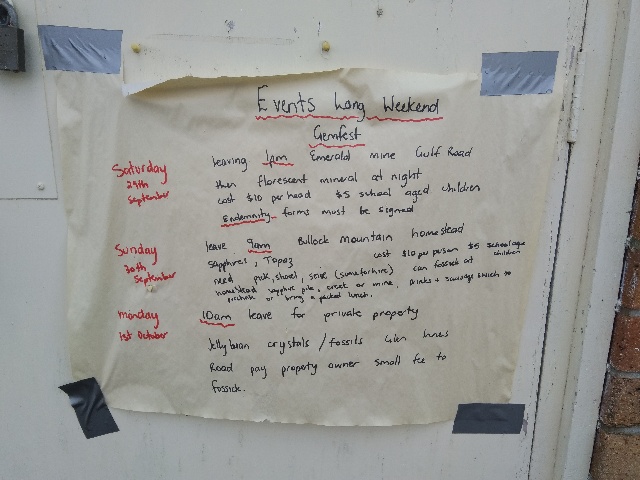 Events Long Weekend
Gemfest
Saturday
29th
September
leaving 1pm Emerald mine Gulf Road
then florescent mineral at night
cost $10 per head $5 school aged children
Endemnity forms must be signed
Sunday
30th
September
leave 9am Bullock mountain homestead
Sapphires, Topaz cost $10 per person $5 school age children
need pick, shovel, seive (some for hire) can fossick at
homestead sapphire pile, creek or mine, drinks + sausage
purchase or bring a packed lunch.
Monday
1st October
10am leave for private property
Jellybean crystals / fossils Glen Innes
Road pay property owner small fee to
fossick.